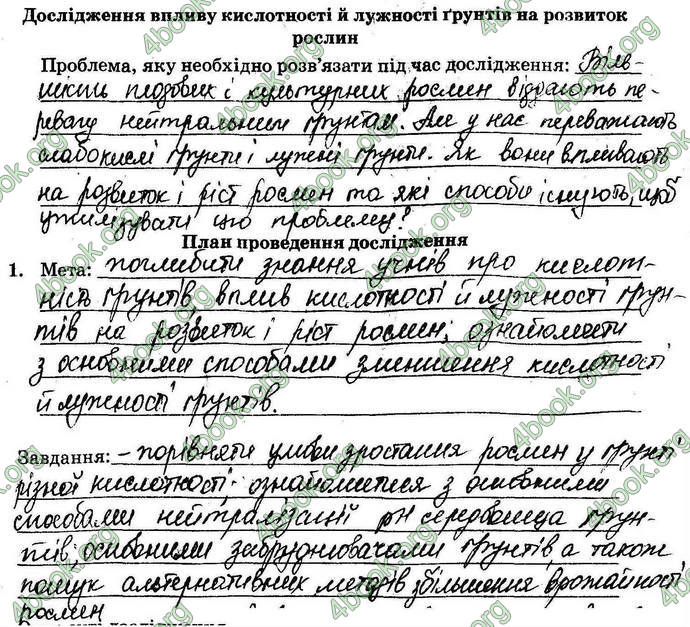 Дослідження впливу кислотності й лужності ґрунтів на розвиток
рослин
Проблема, яку необхідно розв'язати під час дослідження: Біль-
шість плодових і культурних рослин віддають пе-
ревагу нейтральним ґрунтам. Але у нас переважають
слабокислі ґрунти і лужні ґрунти. Як вони впливають
на розвиток і ріст рослин та які способи існують, щоб
цю проблему?
План проведення дослідження
1. Мета: поглибити знання учнів про кислот-
ність ґрунтів, вплив кислотності й лужності ґрун-
тів на розвиток і ріст рослин; ознайомити
з основними способами зменшення кислотності
й лужності ґрунтів.
Завдання: - порівняти умови зростання рослин у ґрунті
різної кислотності; ознайомитися з основними
способами нейтралізації рН середовища ґрун-
тів; основними забруднювачами ґрунтів, а також
пошук альтернативних методів збільшення врожайності
рослин
4book.org